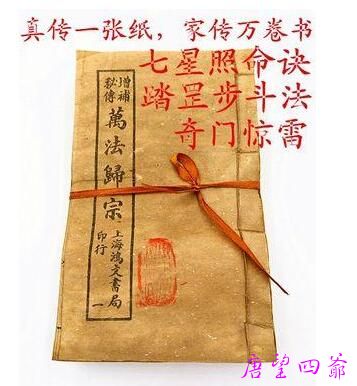 真传一张纸，家传万卷书
七星照命诀
踏罡步斗法
奇门惊雷
增補
秘傳
萬法歸宗
上海鴻文書局
印行
一
唐望四爺